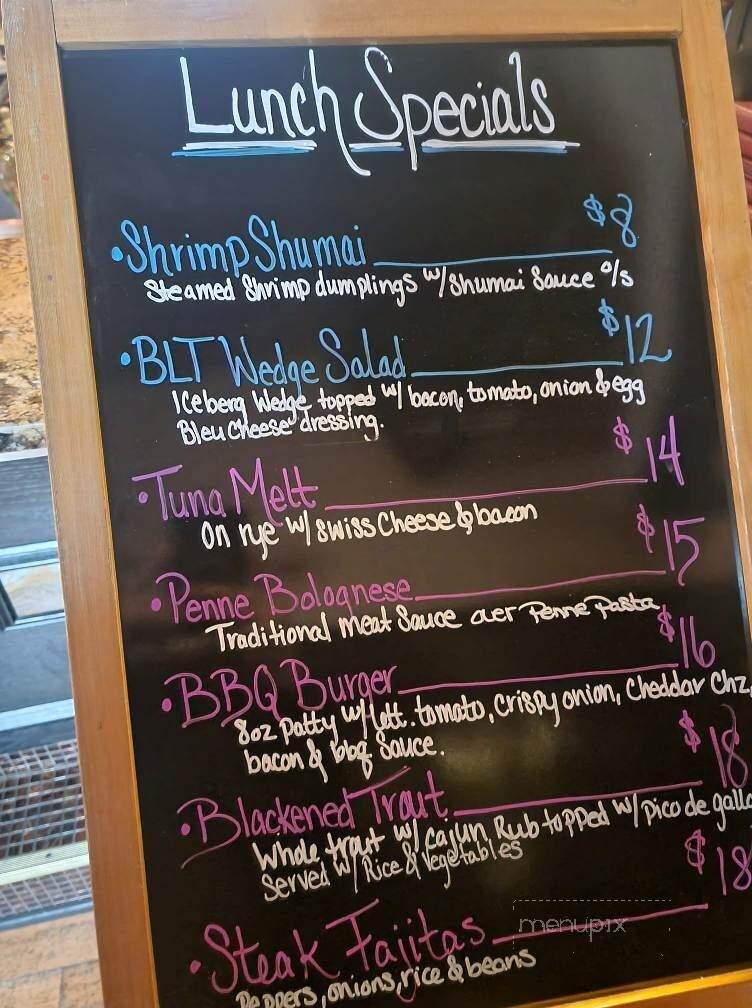 Lunch Specials
•Shrimp Shumai $8
Steamed Shrimp dumplings w/ Shumai Sauce o/s
•BLT Wedge Salad $12
Iceberg Wedge topped w/ bacon, tomato, onion & egg
Bleu Cheese dressing.
•Tuna Melt $14
on rye w/ Swiss Cheese & bacon
•Penne Bolognese $15
Traditional Meat Sauce over Penne Pasta
•BBQ Burger $16
8oz Patty w/ lett. tomato, Crispy onion, Cheddar Chz,
bacon & bbq Sauce.
•Blackened Trout $18
Whole trout w/ Cajun Rub topped w/ pico de gallo
Served w/ Rice & Vegetables
•Steak Fajitas $18
Peppers, onions, rice & beans
menupix